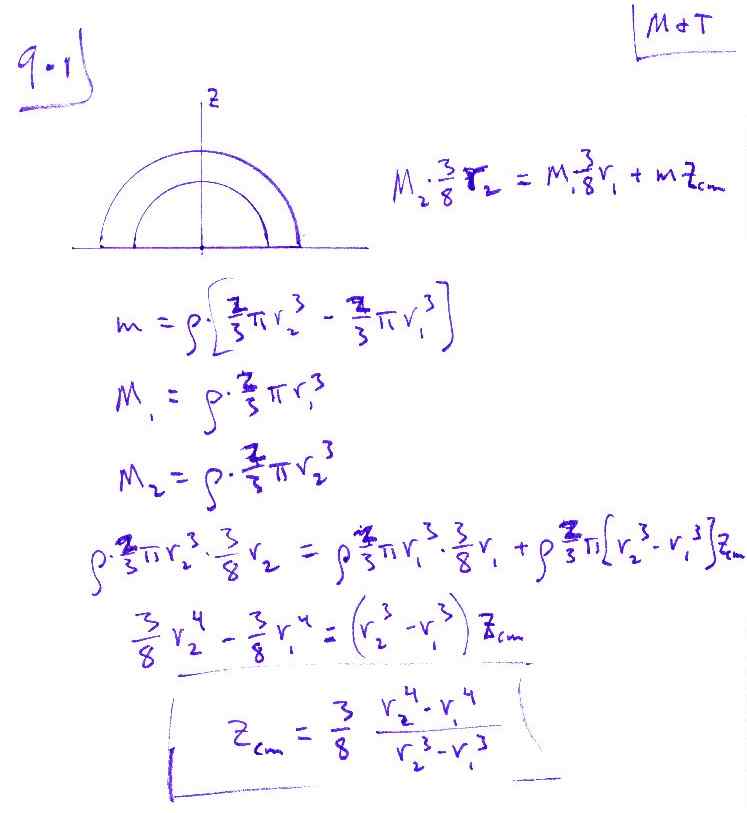 9.1
M & T
z
M₂ · 3/8 r₂ = M₁ 3/8 r₁ + m z_cm
m = ρ · [2/3 π r₂³ - 2/3 π r₁³]
M₁ = ρ · 2/3 π r₁³
M₂ = ρ · 2/3 π r₂³
ρ · 2/3 π r₂³ · 3/8 r₂ = ρ 2/3 π r₁³ · 3/8 r₁ + ρ 2/3 π [r₂³ - r₁³] z_cm
3/8 r₂⁴ - 3/8 r₁⁴ = (r₂³ - r₁³) z_cm
z_cm = 3/8 (r₂⁴ - r₁⁴)/(r₂³ - r₁³)